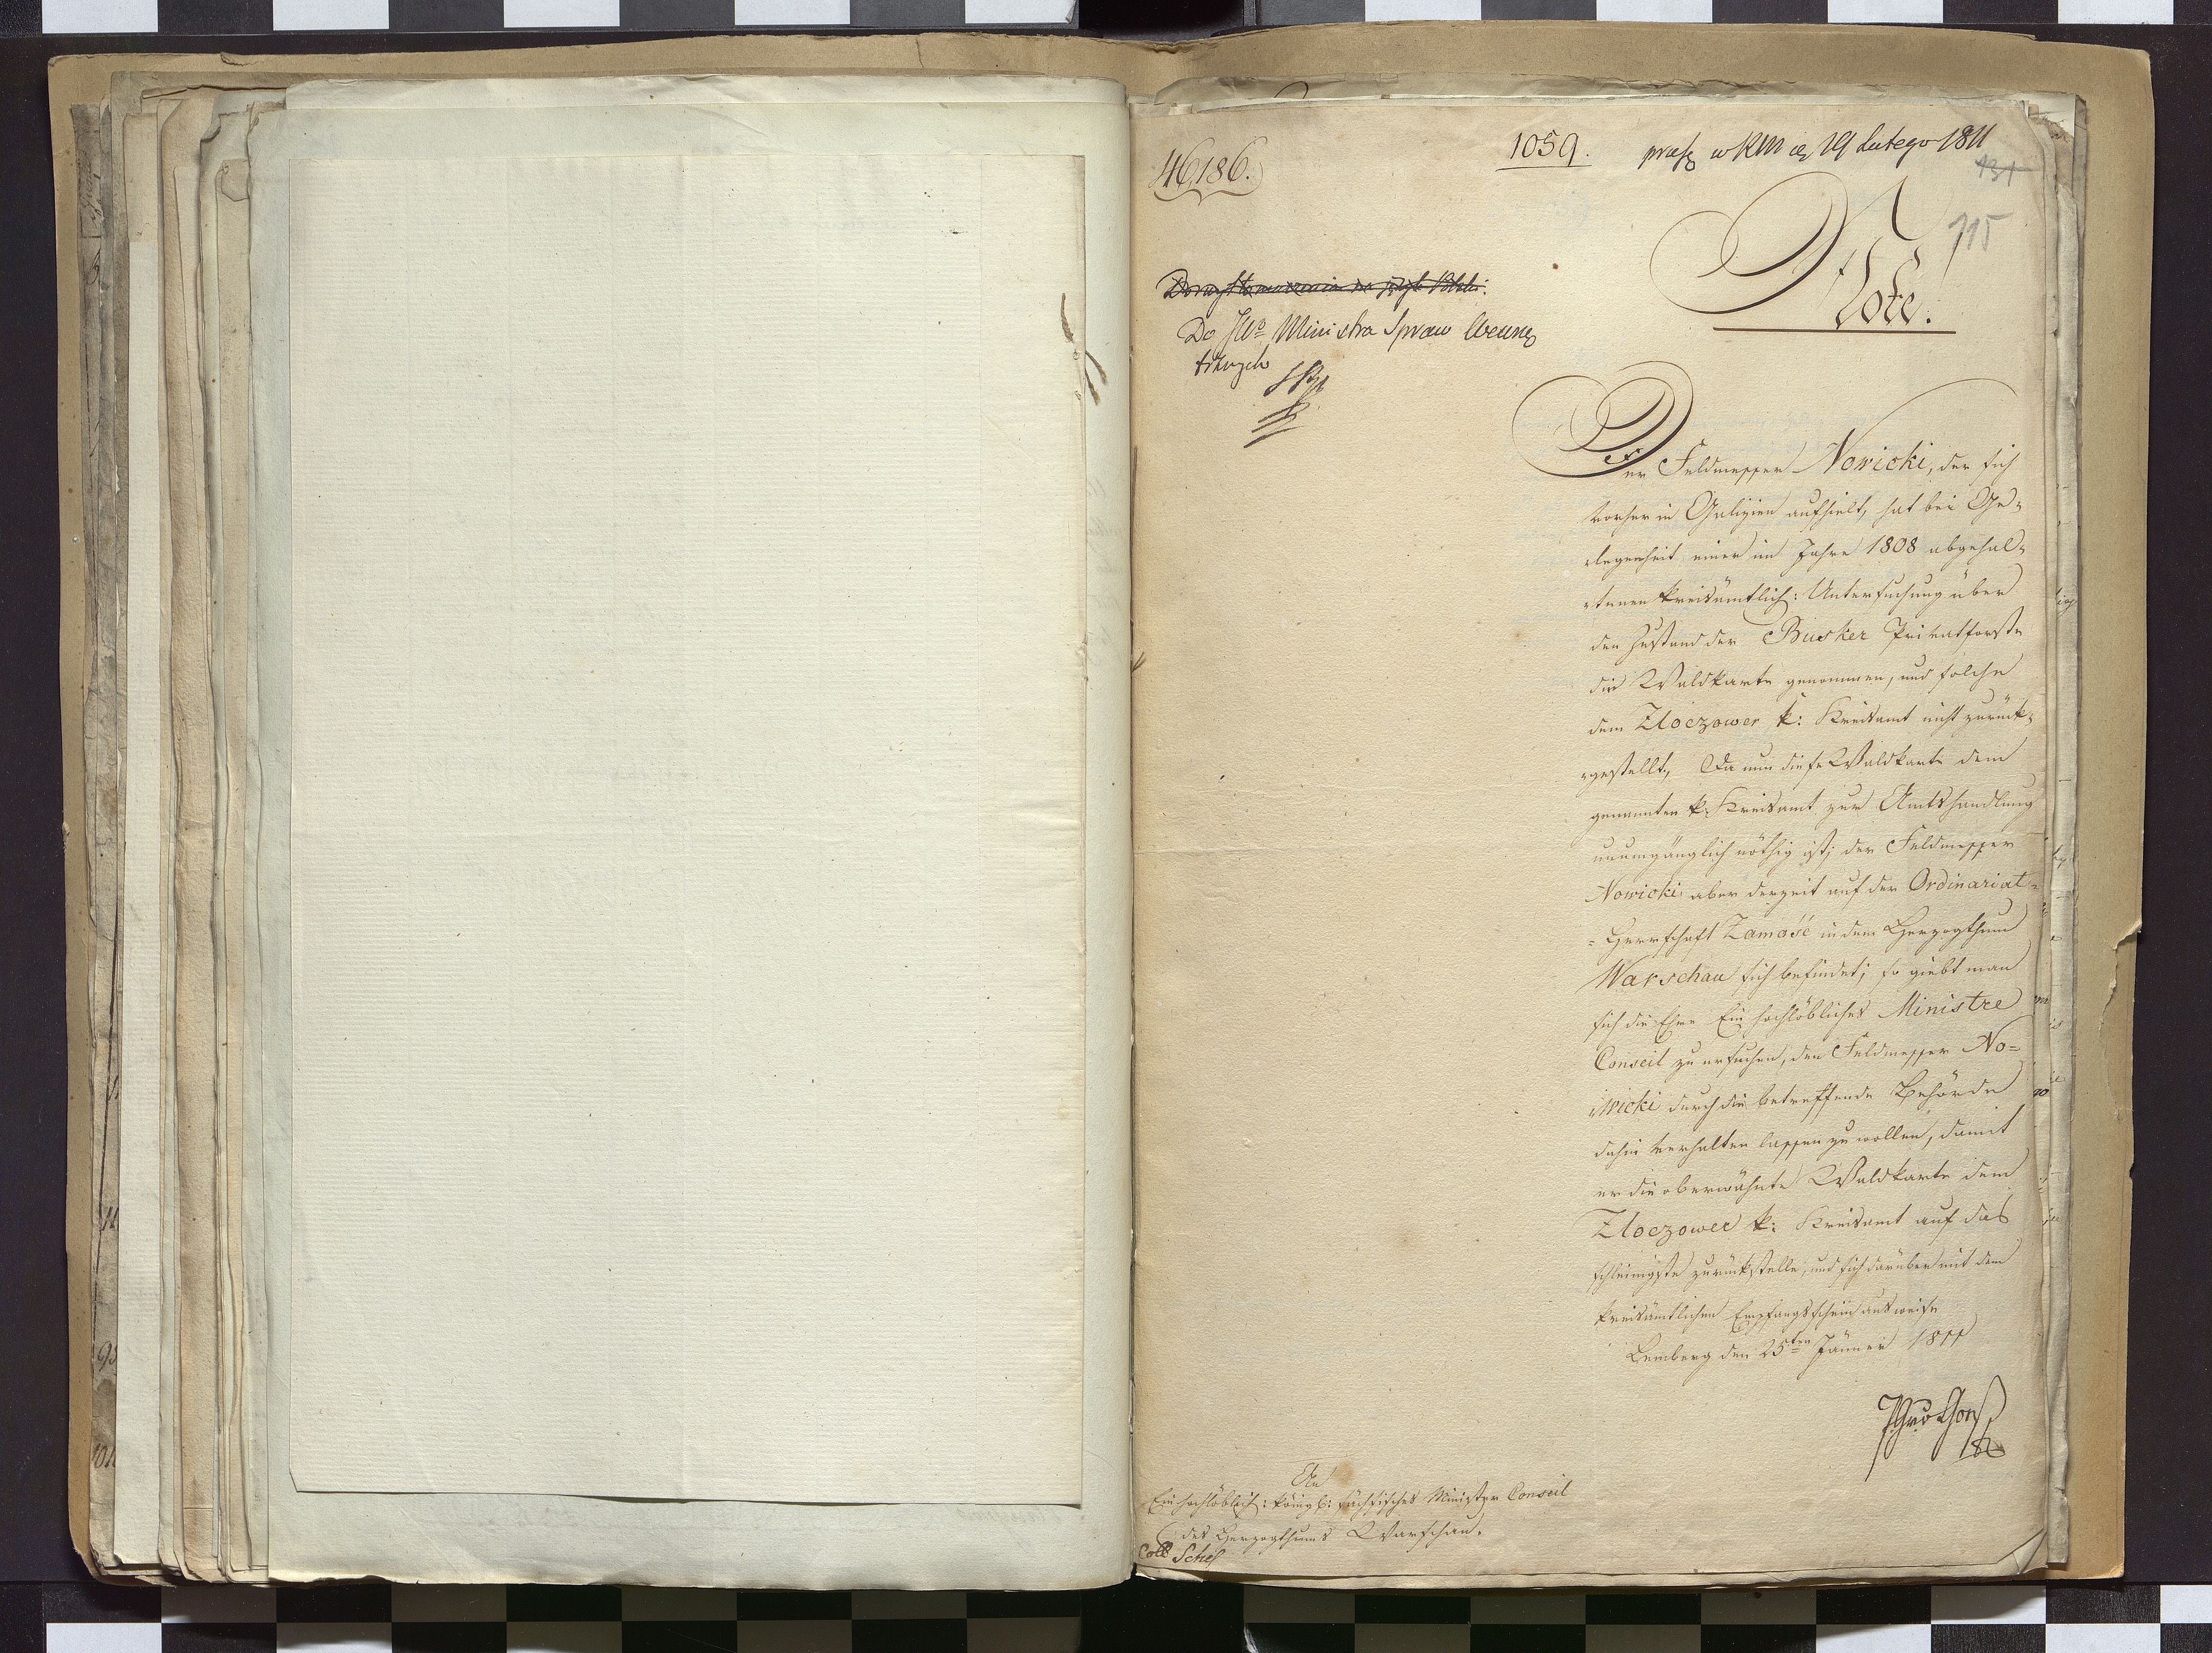 46,186.
1059.
praes w RM d 19 Lutego 1811
131
715
Note.
Do przetłomaczenia na język Polski.
Do JWo Ministra Spraw Wewnę
trznych
Der Feldmesser Nowicki, der sich
vorher in Galizien aufhielt, hat bei Ge-
-legenheit einer im Jahre 1808 abgehal-
-tenen kreisämtlich: Untersuchung über
den Zustand der Busker Privatforste
die Waldkarte genommen, und solche
dem Zloczower k: Kreisamt nicht zurück-
-gestellt, Da nun diese Waldkarte dem
genannten k: Kreisamt zur Amtshandlung
unumgänglich nöthig ist; der Feldmesser
Nowicki aber derzeit auf der Ordinariat-
=Herrschaft Zamość in dem Herzogthum
Warschau sich befindet; so giebt man
sich die Ehre Ein hochlöbliches Ministre
Conseil zu ersuchen, den Feldmesser No=
wicki durch die betreffende Behörde
dahin verhalten lassen zu wollen, damit
er die oberwähnte Waldkarte dem
Zloczower k: Kreisamt auf das
schleinigste zurückstelle, und sich darüber mit dem
kreisämtlichen Empfangsschein ausweise
Lemberg den 25ten Jänner 1811
An
Ein hochlöblich: königl: sächsisches Minister Conseil
des Herzogthums Warschau.
Coll Schef